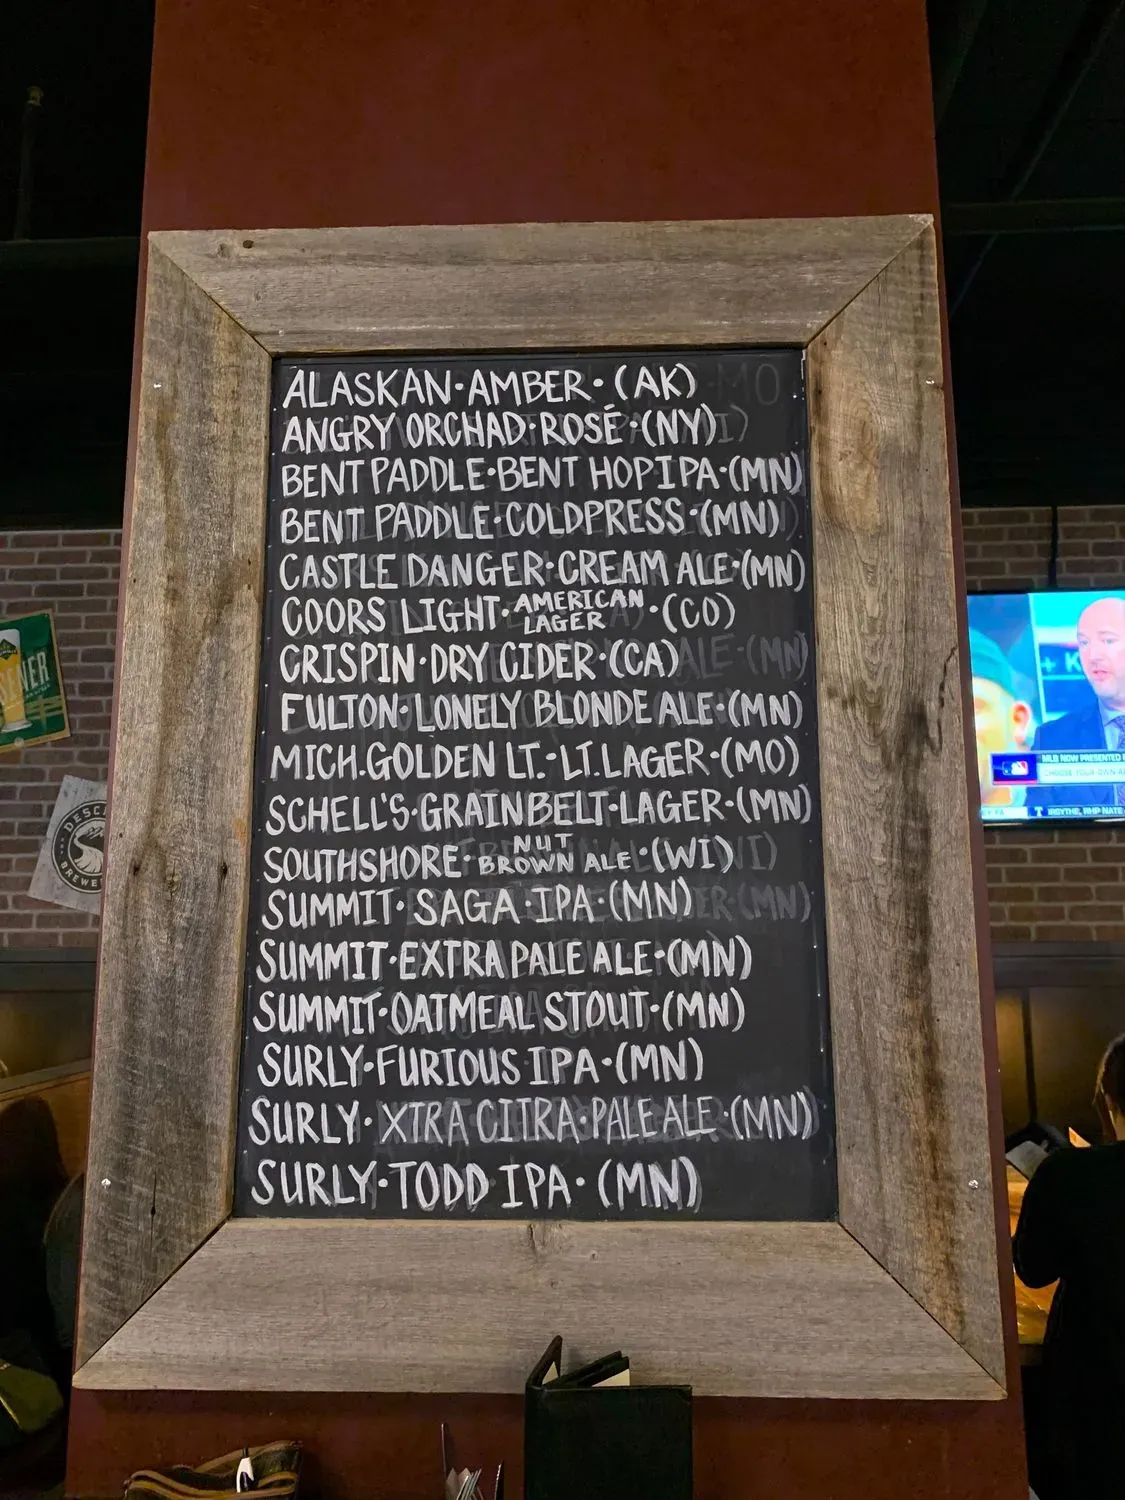 ALASKAN·AMBER·(AK)
ANGRY ORCHAD·ROSÉ·(NY)
BENT PADDLE·BENT HOP IPA·(MN)
BENT PADDLE·COLDPRESS·(MN)
CASTLE DANGER·CREAM ALE·(MN)
COORS LIGHT·AMERICAN LAGER·(CO)
CRISPIN·DRY CIDER·(CA)
FULTON·LONELY BLONDE ALE·(MN)
MICH.GOLDEN LT.·LT.LAGER·(MO)
SCHELL'S·GRAINBELT·LAGER·(MN)
SOUTHSHORE·NUT BROWN ALE·(WI)
SUMMIT·SAGA·IPA·(MN)
SUMMIT·EXTRA PALE ALE·(MN)
SUMMIT·OATMEAL STOUT·(MN)
SURLY·FURIOUS IPA·(MN)
SURLY·XTRA CITRA·PALE ALE·(MN)
SURLY·TODD IPA·(MN)
MLB NOW PRESENTED